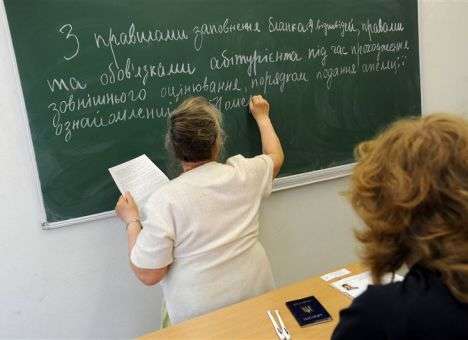 З правилами заповнення бланка відповідей, правами
та обов'язками абітурієнта під час проходження
зовнішнього оцінювання, порядком подання апеляції
ознайомлений